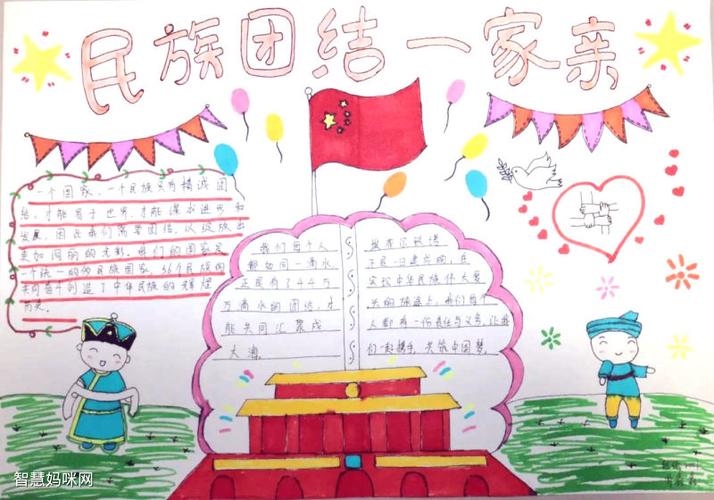 民族团结一家亲
一个国家,一个民族只有精诚团
结,才能自于世界,才能谋求进步和
发展,因此我们需要团结,以绽放出
更加绚丽的光彩。我们的国家是
一个统一的多民族国家,56个民族
共同创造了中华民族的辉煌
历史。
我们每个人
都如同一滴水,
正是有了
万滴水的团结,才
能共同汇聚成
大海。
罗马不是一日建成的,在
实现中华民族伟大复
兴的旅途上,我们每个
人都有一份责任与义务,让我
们一起携手,共筑中国梦。
智慧妈咪网